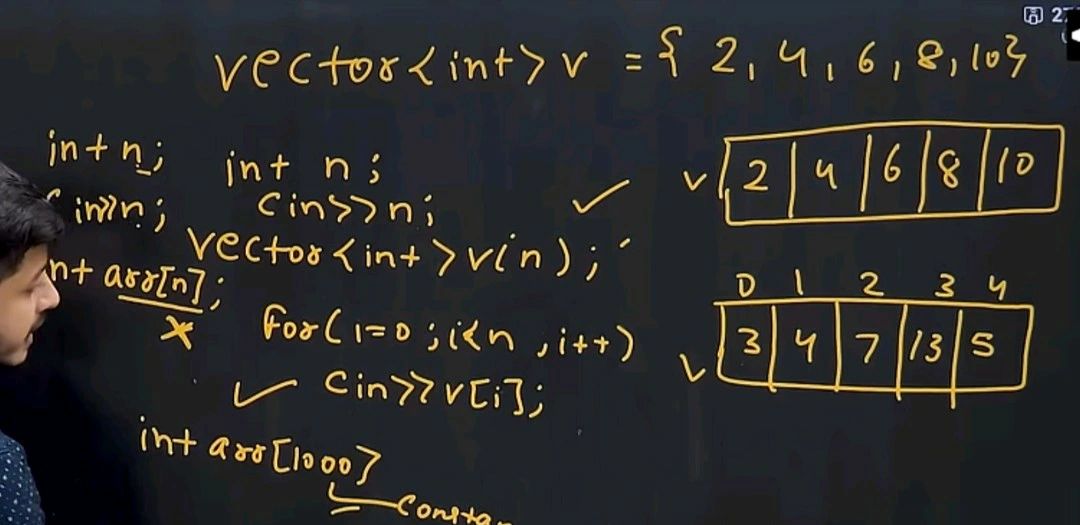 vector<int> v = { 2, 4, 6, 8, 10}
int n;
cin>>n;
int arr[n];
x
int n;
cin>>n;
vector<int>v(n);
for(i=0;i<n,i++)
cin>>v[i];
int arr[1000}
v 2 4 6 8 10
0 1 2 3 4
v 3 4 7 13 5